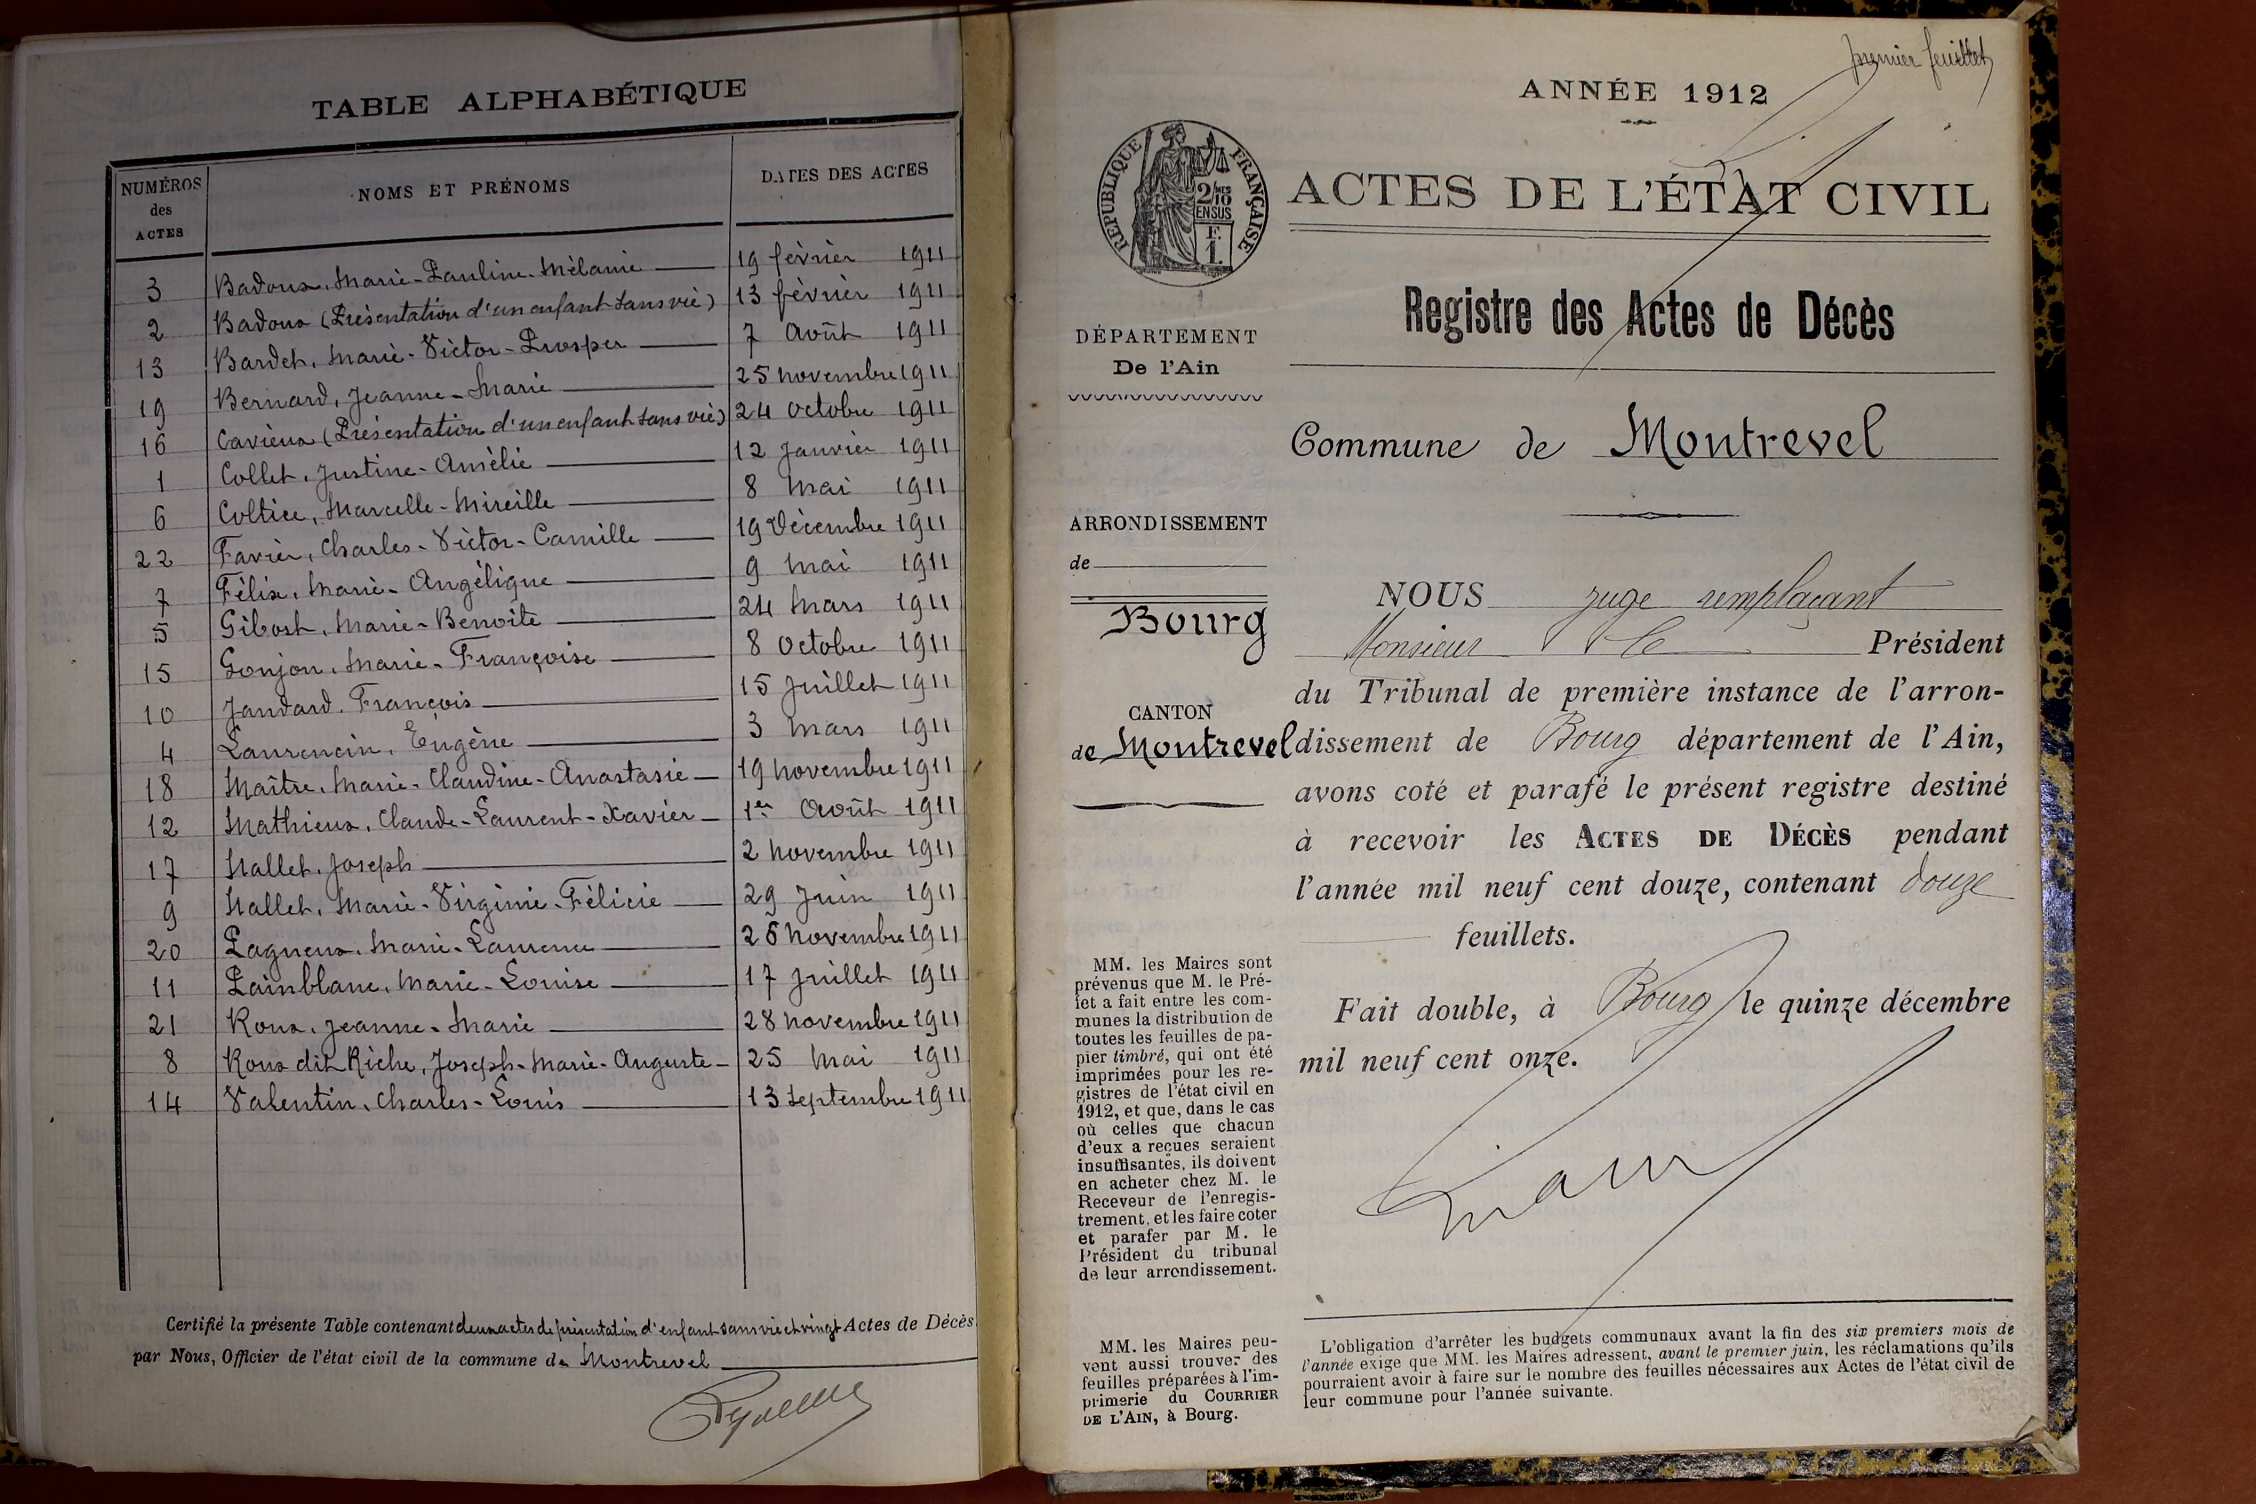 TABLE ALPHABÉTIQUE
NUMÉROS des ACTES NOMS ET PRÉNOMS DATES DES ACTES
3 Badoux, Marie-Pauline-Mélanie 19 février 1911
2 Badoux (Présentation d'un enfant sans vie) 13 février 1911
13 Bardet, Marie-Victor-Prosper 7 Août 1911
19 Bernard, Jeanne-Marie 25 novembre 1911
16 Cavieux (Présentation d'un enfant sans vie) 24 octobre 1911
1 Collet, Justine-Amélie 12 Janvier 1911
6 Coltice, Marcelle-Mireille 8 Mai 1911
22 Favier, Charles-Victor-Camille 19 Décembre 1911
7 Félix, Marie-Angélique 9 Mai 1911
5 Gibost, Marie-Benoîte 24 Mars 1911
15 Gonjon, Marie-Françoise 8 Octobre 1911
10 Jandard, François 15 Juillet 1911
4 Laurencin, Eugène 3 Mars 1911
18 Maître, Marie-Claudine-Anastasie 19 novembre 1911
12 Mathieux, Claude-Laurent-Xavier 1er Août 1911
17 Nallet, Joseph 2 novembre 1911
9 Nallet, Marie-Virginie-Félicie 29 Juin 1911
20 Pagneux, Marie-Laurence 26 novembre 1911
11 Painblanc, Marie-Louise 17 Juillet 1911
21 Roux, Jeanne-Marie 28 novembre 1911
8 Roux dit Riche, Joseph-Marie-Auguste 25 Mai 1911
14 Valentin, Charles-Louis 13 septembre 1911
Certifié la présente Table contenant deux actes de présentation d'enfant sans vie et vingt Actes de Décès
par Nous, Officier de l'état civil de la commune de Montrevel
premier feuillet
ANNÉE 1912
RÉPUBLIQUE FRANÇAISE
2/10
EN SUS
F.
1.
ACTES DE L'ÉTAT CIVIL
Registre des Actes de Décès
DÉPARTEMENT
De l'Ain
Commune de Montrevel
ARRONDISSEMENT
de
Bourg
CANTON
de Montrevel
NOUS juge remplaçant
Monsieur le Président
du Tribunal de première instance de l'arron-
dissement de Bourg département de l'Ain,
avons coté et parafé le présent registre destiné
à recevoir les ACTES DE DÉCÈS pendant
l'année mil neuf cent douze, contenant douze
feuillets.
Fait double, à Bourg le quinze décembre
mil neuf cent onze.
MM. les Maires sont
prévenus que M. le Pré-
fet a fait entre les com-
munes la distribution de
toutes les feuilles de pa-
pier timbré, qui ont été
imprimées pour les re-
gistres de l'état civil en
1912, et que, dans le cas
où celles que chacun
d'eux a reçues seraient
insuffisantes, ils doivent
en acheter chez M. le
Receveur de l'enregis-
trement, et les faire coter
et parafer par M. le
Président du tribunal
de leur arrondissement.
MM. les Maires peu-
vent aussi trouver des
feuilles préparées à l'im-
primerie du COURRIER
DE L'AIN, à Bourg.
L'obligation d'arrêter les budgets communaux avant la fin des six premiers mois de
l'année exige que MM. les Maires adressent, avant le premier juin, les réclamations qu'ils
pourraient avoir à faire sur le nombre des feuilles nécessaires aux Actes de l'état civil de
leur commune pour l'année suivante.